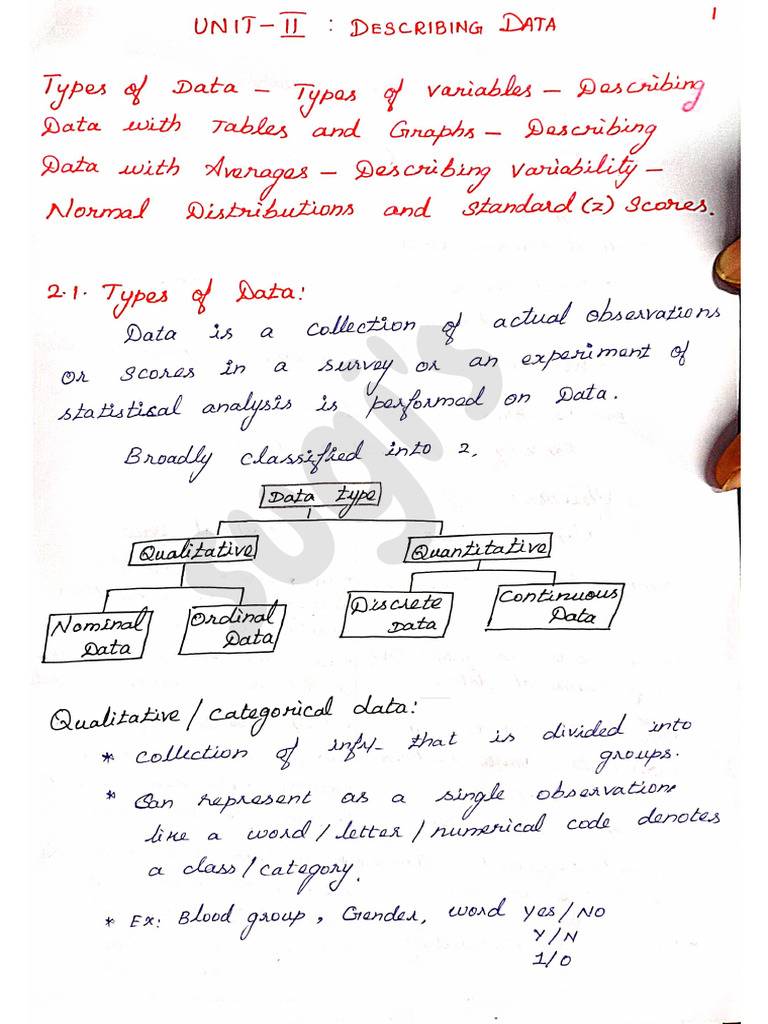 UNIT-II : DESCRIBING DATA
1
Types of Data – Types of variables – Describing
Data with Tables and Graphs – Describing
Data with Averages – Describing Variability –
Normal Distributions and Standard (z) Scores.
2.1. Types of Data:
Data is a collection of actual observations
or scores in a survey or an experiment of
statistical analysis is performed on Data.
Broadly classified into 2.
Data type
Qualitative
Quantitative
Nominal Data
Ordinal Data
Discrete Data
Continuous Data
Qualitative / categorical data:
* collection of infr- that is divided into
groups.
* Can represent as a single observation
like a word / letter / numerical code denotes
a class / category.
* Ex: Blood group, Gender, word Yes / NO
Y/N
1/0
sugi's